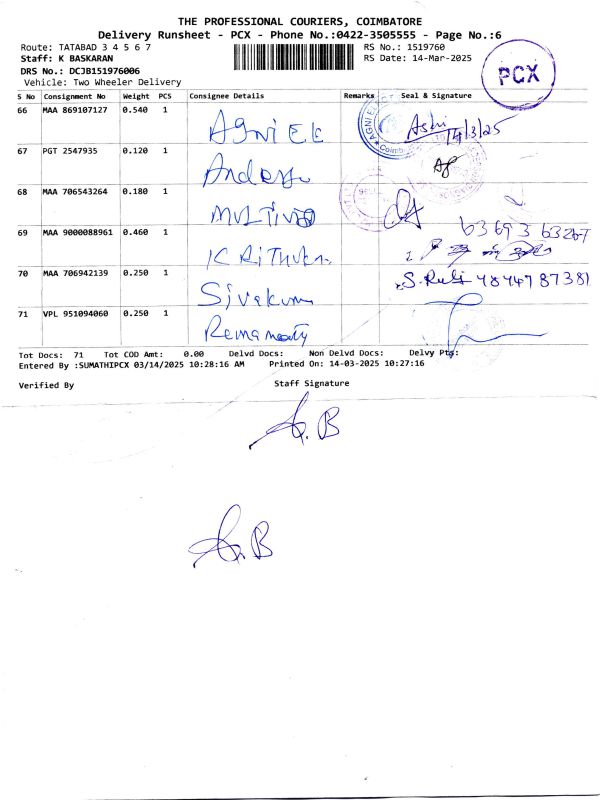 THE PROFESSIONAL COURIERS, COIMBATORE
Delivery Runsheet - PCX - Phone No.:0422-3505555 - Page No.:6
Route: TATABAD 3 4 5 6 7 RS No.: 1519760
Staff: K BASKARAN RS Date: 14-Mar-2025
DRS No.: DCJB151976006
Vehicle: Two Wheeler Delivery
PCX
S No Consignment No Weight PCS Consignee Details Remarks Seal & Signature
66 MAA 869107127 0.540 1 AGNi EE 14/3/25
67 PGT 2547935 0.120 1
68 MAA 706543264 0.180 1
69 MAA 9000088961 0.460 1
70 MAA 706942139 0.250 1 Sivakum
71 VPL 951094060 0.250 1
Tot Docs: 71 Tot COD Amt: 0.00 Delvd Docs: Non Delvd Docs: Delvy Ptg:
Entered By :SUMATHIPCX 03/14/2025 10:28:16 AM Printed On: 14-03-2025 10:27:16
Verified By Staff Signature